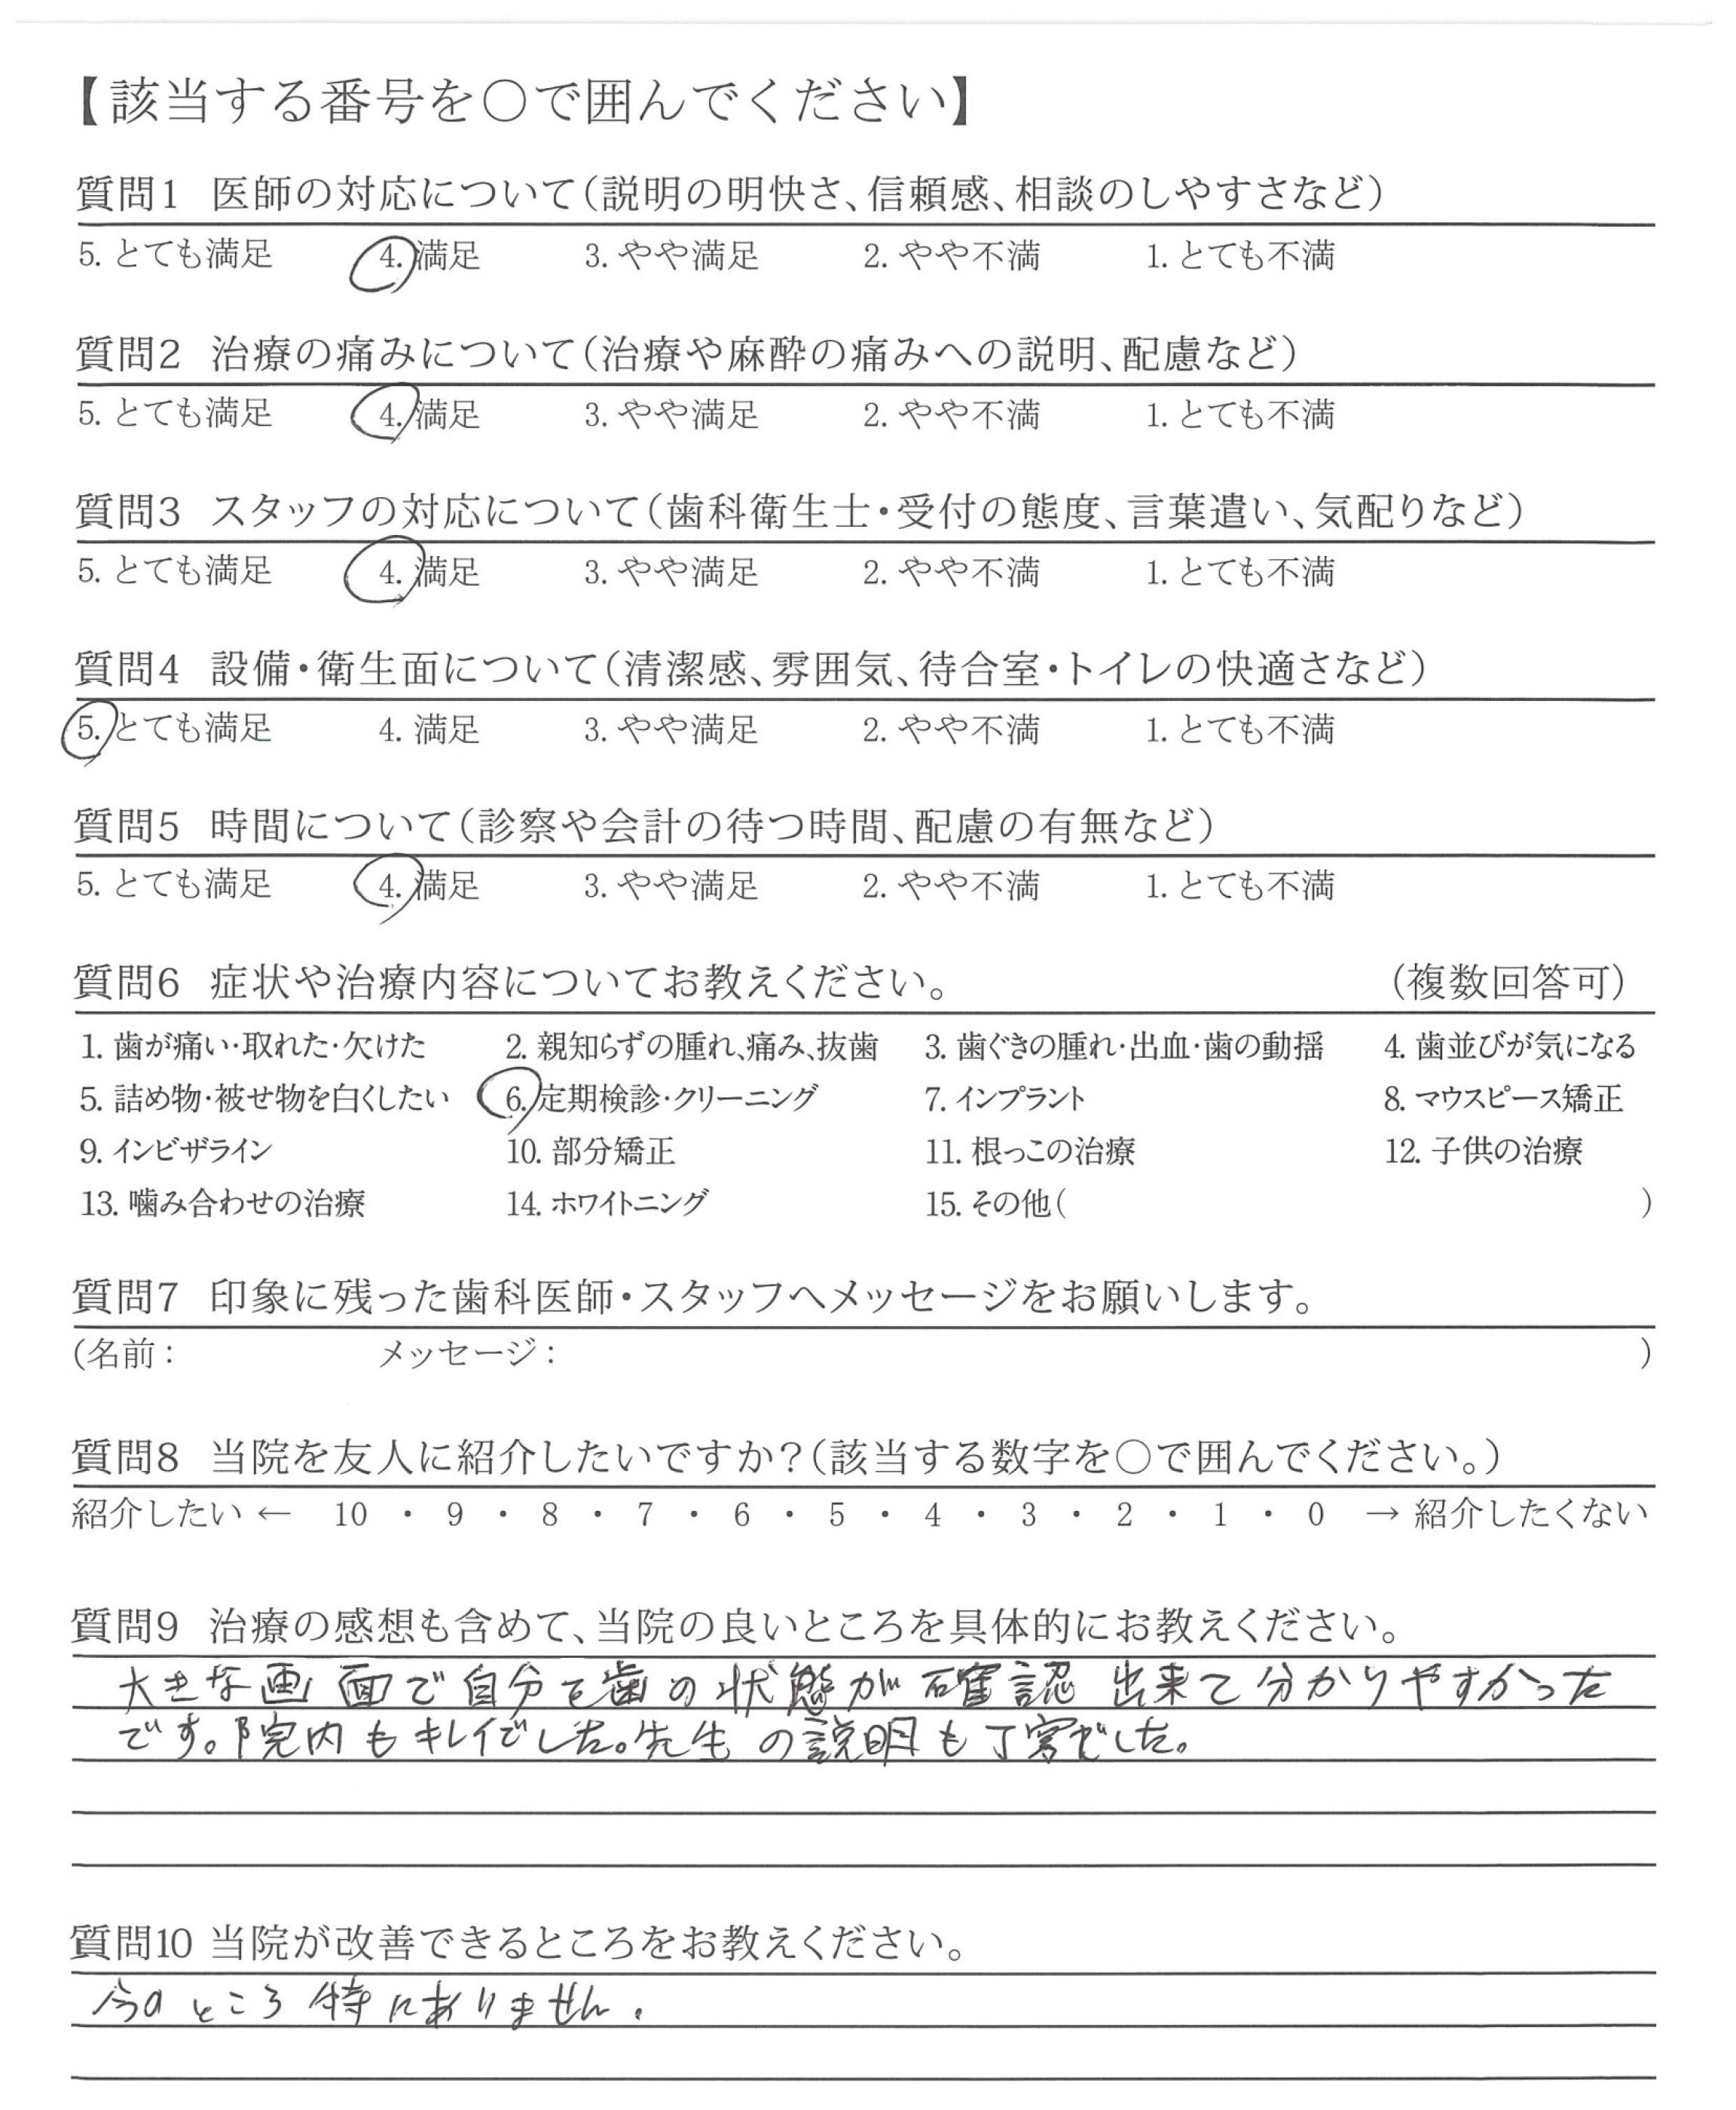 【該当する番号を〇で囲んでください】
質問1 医師の対応について(説明の明快さ、信頼感、相談のしやすさなど)
5. とても満足 4. 満足 3. やや満足 2. やや不満 1. とても不満
質問2 治療の痛みについて(治療や麻酔の痛みへの説明、配慮など)
5. とても満足 4. 満足 3. やや満足 2. やや不満 1. とても不満
質問3 スタッフの対応について(歯科衛生士・受付の態度、言葉遣い、気配りなど)
5. とても満足 4. 満足 3. やや満足 2. やや不満 1. とても不満
質問4 設備・衛生面について(清潔感、雰囲気、待合室・トイレの快適さなど)
5. とても満足 4. 満足 3. やや満足 2. やや不満 1. とても不満
質問5 時間について(診察や会計の待つ時間、配慮の有無など)
5. とても満足 4. 満足 3. やや満足 2. やや不満 1. とても不満
質問6 症状や治療内容についてお教えください。 (複数回答可)
1. 歯が痛い・取れた・欠けた 2. 親知らずの腫れ、痛み、抜歯 3. 歯ぐきの腫れ・出血・歯の動揺 4. 歯並びが気になる
5. 詰め物・被せ物を白くしたい 6. 定期検診・クリーニング 7. インプラント 8. マウスピース矯正
9. インビザライン 10. 部分矯正 11. 根っこの治療 12. 子供の治療
13. 噛み合わせの治療 14. ホワイトニング 15. その他( )
質問7 印象に残った歯科医師・スタッフへメッセージをお願いします。
(名前: メッセージ: )
質問8 当院を友人に紹介したいですか?(該当する数字を〇で囲んでください。)
紹介したい ← 10 ・ 9 ・ 8 ・ 7 ・ 6 ・ 5 ・ 4 ・ 3 ・ 2 ・ 1 ・ 0 → 紹介したくない
質問9 治療の感想も含めて、当院の良いところを具体的にお教えください。
大きな画面で自分で歯の状態が確認出来て分かりやすかった
です。院内もキレイでした。先生の説明も丁寧でした。
質問10 当院が改善できるところをお教えください。
今のところ特にありません。